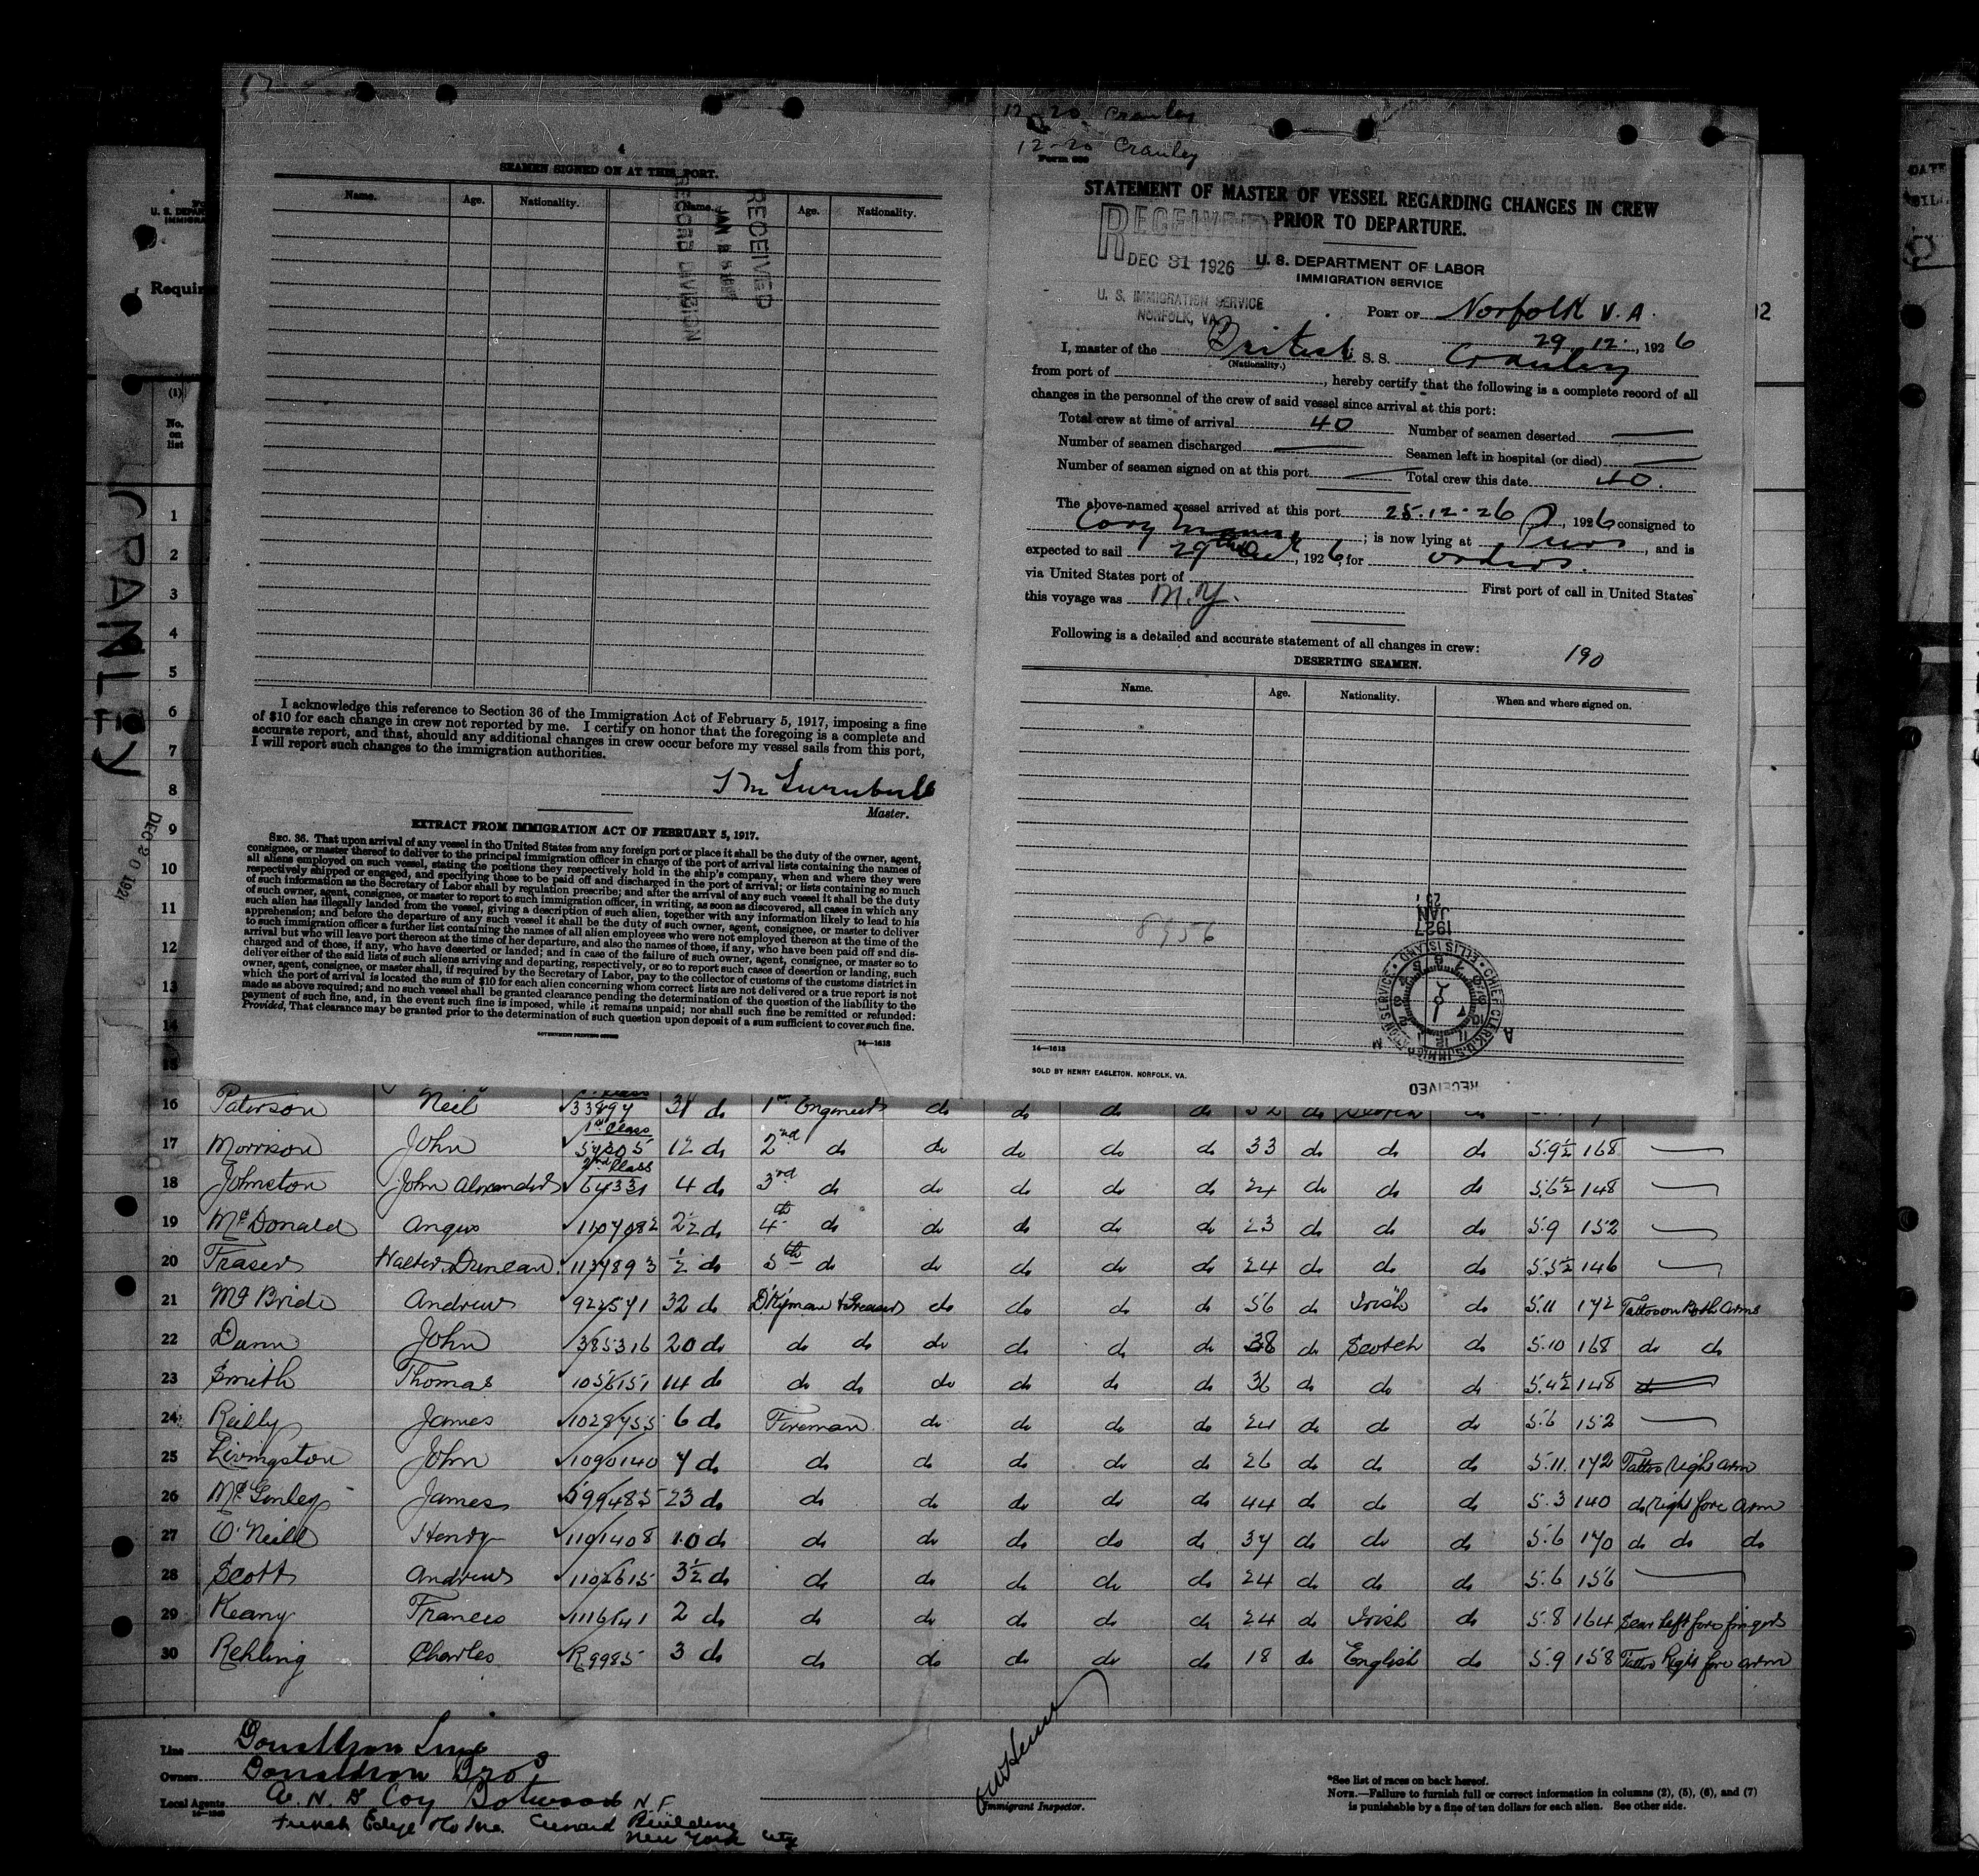 4
SEAMEN SIGNED ON AT THIS PORT.
Name. Age. Nationality. Name. Age. Nationality.
RECEIVED
JAN
RECORD DIVISION
I acknowledge this reference to Section 36 of the Immigration Act of February 5, 1917, imposing a fine
of $10 for each change in crew not reported by me. I certify on honor that the foregoing is a complete and
accurate report, and that, should any additional changes in crew occur before my vessel sails from this port,
I will report such changes to the immigration authorities.
Turnbull
Master.
EXTRACT FROM IMMIGRATION ACT OF FEBRUARY 5, 1917.
SEC. 36. That upon arrival of any vessel in the United States from any foreign port or place it shall be the duty of the owner, agent,
consignee, or master thereof to deliver to the principal immigration officer in charge of the port of arrival lists containing the names of
all aliens employed on such vessel, stating the positions they respectively hold in the ship's company, when and where they were
respectively shipped or engaged, and specifying those to be paid off and discharged in the port of arrival; or lists containing so much
of such information as the Secretary of Labor shall by regulation prescribe; and after the arrival of any such vessel it shall be the duty
of such owner, agent, consignee, or master to report to such immigration officer, in writing, as soon as discovered, all cases in which any
such alien has illegally landed from the vessel, giving a description of such alien, together with any information likely to lead to his
apprehension; and before the departure of any such vessel it shall be the duty of such owner, agent, consignee, or master to deliver
to such immigration officer a further list containing the names of all alien employees who were not employed thereon at the time of the
arrival but who will leave port thereon at the time of her departure, and also the names of those, if any, who have been paid off and dis-
charged and of those, if any, who have deserted or landed; and in case of the failure of such owner, agent, consignee, or master so to
deliver either of the said lists of such aliens arriving and departing, respectively, or so to report such cases of desertion or landing, such
owner, agent, consignee, or master shall, if required by the Secretary of Labor, pay to the collector of customs of the customs district in
which the port of arrival is located the sum of $10 for each alien concerning whom correct lists are not delivered or a true report is not
made as above required; and no such vessel shall be granted clearance pending the determination of the question of the liability to the
payment of such fine, and, in the event such fine is imposed, while it remains unpaid; nor shall such fine be remitted or refunded:
Provided, That clearance may be granted prior to the determination of such question upon deposit of a sum sufficient to cover such fine.
GOVERNMENT PRINTING OFFICE
14—1618
12-20 Cranley
12-20 Cranley
STATEMENT OF MASTER OF VESSEL REGARDING CHANGES IN CREW
PRIOR TO DEPARTURE.
RECEIVED
DEC 31 1926
U. S. IMMIGRATION SERVICE
NORFOLK, VA.
U. S. DEPARTMENT OF LABOR
IMMIGRATION SERVICE
PORT OF Norfolk V.A.
29.12., 1926
I, master of the British S. S. Cranley
(Nationality.)
from port of , hereby certify that the following is a complete record of all
changes in the personnel of the crew of said vessel since arrival at this port:
Total crew at time of arrival 40 Number of seamen deserted —
Number of seamen discharged — Seamen left in hospital (or died) —
Number of seamen signed on at this port — Total crew this date 40.
The above-named vessel arrived at this port 25.12-26, 1926 consigned to
Cory ; is now lying at , and is
expected to sail 29th Dec, 1926, for orders.
via United States port of First port of call in United States
this voyage was N.Y.
Following is a detailed and accurate statement of all changes in crew:
190
DESERTING SEAMEN.
Name. Age. Nationality. When and where signed on.
8956
JAN
1927
CHIEF CLERK U.S. IMMIGRATION SERVICE • ELLIS ISLAND
RECEIVED
14—1618
SOLD BY HENRY EAGLETON, NORFOLK, VA.
U. S. DEPA
IMMIGRA
Requir
(1)
No.
on
list
CRANLEY
DEC 20 192
1
2
3
4
5
6
7
8
9
10
11
12
13
14
15
16 Paterson Neil 33894 31 do 1st Engineer do do do do 52 do Scotch do
17 Morrison John 1st Class 54205 12 do 2nd do do do do do 33 do do do 5.9½ 168 —
18 Johnston John Alexander 2nd Class 64331 4 do 3rd do do do do do 24 do do do 5.6½ 148 —
19 McDonald Angus 1107082 2½ do 4th do do do do do 23 do do do 5.9 152 —
20 Fraser Walter Duncan 1137893 ½ do 5th do do do do do 24 do do do 5.5½ 146 —
21 McBride Andrew 922571 32 do D'kyman & Greaser do do do do 56 do Irish do 5.11 172 Tattoo on Both Arms
22 Dunn John 385316 20 do do do do do do do 38 do Scotch do 5.10 168 do do
23 Smith Thomas 1056151 14 do do do do do do do 36 do do do 5.4½ 148 —
24 Reilly James 1028755 6 do Fireman do do do do 24 do do do 5.6 152 —
25 Livingston John 1090140 7 do do do do do do 26 do do do 5.11 172 Tattoo Right Arm
26 McGinley James 599485 23 do do do do do do 44 do do do 5.3 140 do Right fore Arm
27 O'Neill Henry 1101408 10 do do do do do do 37 do do do 5.6 170 do do do
28 Scott Andrew 1102615 3½ do do do do do do 24 do do do 5.6 156 —
29 Keany Francis 1116141 2 do do do do do do 24 do Irish do 5.8 164 Scar left fore finger
30 Rehling Charles R9985 3 do do do do do do 18 do English do 5.9 158 Tattoo Right fore Arm
Line Donaldson Line
Owners Donaldson Bros
Local Agents A. N. D Coy Botwood N.F.
Cunard Building
New York City
Immigrant Inspector.
*See list of races on back hereof.
NOTE.—Failure to furnish full or correct information in columns (2), (5), (6), and (7)
is punishable by a fine of ten dollars for each alien. See other side.